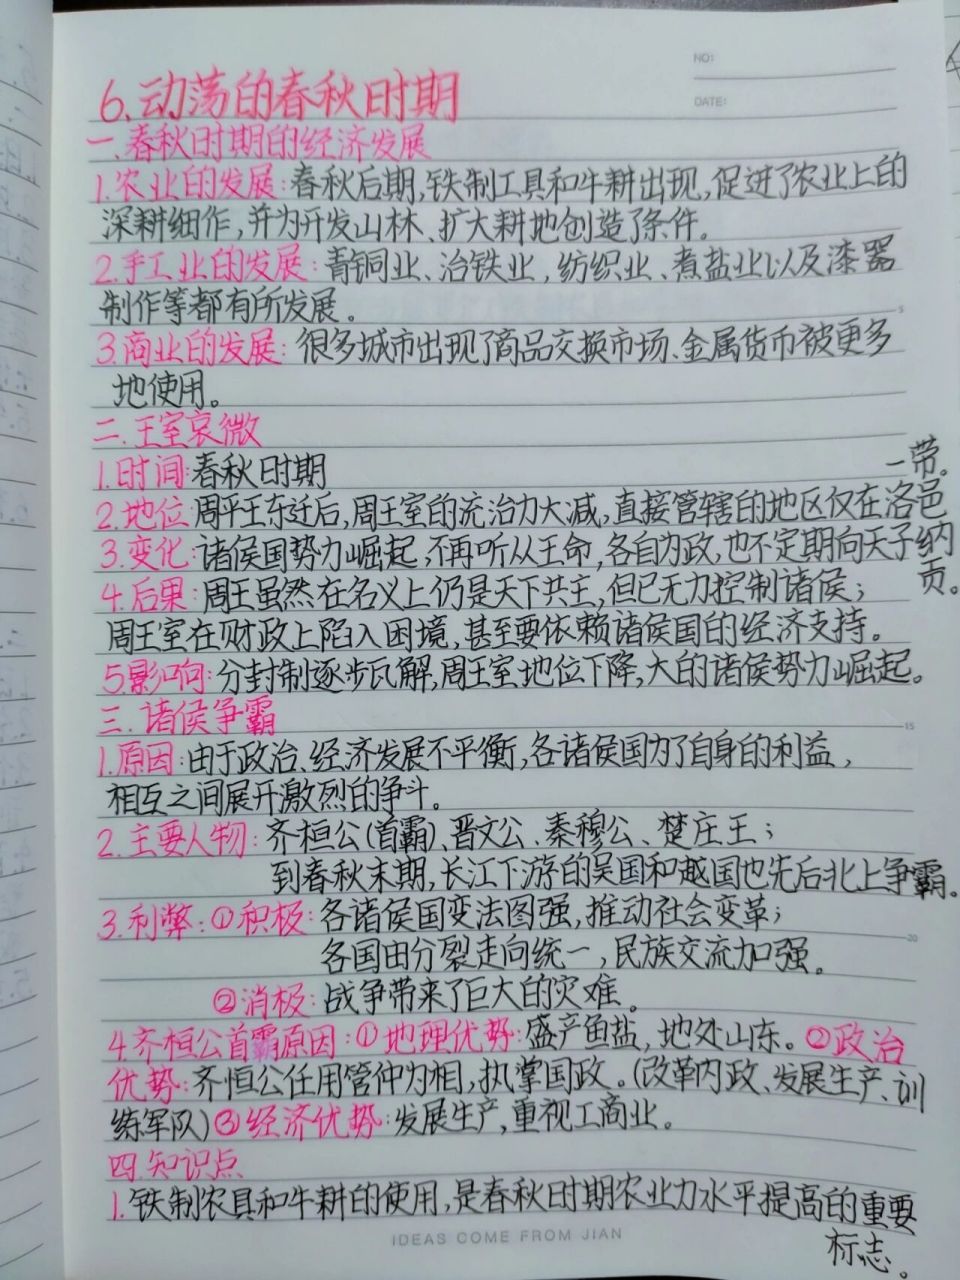 NO:
DATE:
6.动荡的春秋时期
一.春秋时期的经济发展
1.农业的发展:春秋后期,铁制工具和牛耕出现,促进了农业上的
深耕细作,并为开发山林、扩大耕地创造了条件。
2.手工业的发展:青铜业、冶铁业,纺织业、煮盐业以及漆器
制作等都有所发展。
3.商业的发展:很多城市出现了商品交换市场、金属货币被更多
地使用。
二.王室衰微
1.时间:春秋时期
2.地位:周平王东迁后,周王室的统治力大减,直接管辖的地区仅在洛邑
一带。
3.变化:诸侯国势力崛起,不再听从王命,各自为政,也不定期向天子纳
贡。
4.后果:周王虽然在名义上仍是天下共主,但已无力控制诸侯;
周王室在财政上陷入困境,甚至要依赖诸侯国的经济支持。
5.影响:分封制逐步瓦解,周王室地位下降,大的诸侯势力崛起。
三.诸侯争霸
1.原因:由于政治、经济发展不平衡,各诸侯国为了自身的利益,
相互之间展开激烈的争斗。
2.主要人物:齐桓公(首霸)、晋文公、秦穆公、楚庄王;
到春秋末期,长江下游的吴国和越国也先后北上争霸。
3.利弊:①积极:各诸侯国变法图强,推动社会变革;
各国由分裂走向统一,民族交流加强。
②消极:战争带来了巨大的灾难。
4.齐桓公首霸原因:①地理优势:盛产鱼盐,地处山东。②政治
优势:齐恒公任用管仲为相,执掌国政。(改革内政、发展生产、训
练军队)③经济优势:发展生产,重视工商业。
四.知识点
1.铁制农具和牛耕的使用,是春秋时期农业力水平提高的重要
标志。
IDEAS COME FROM JIAN
5
15
20